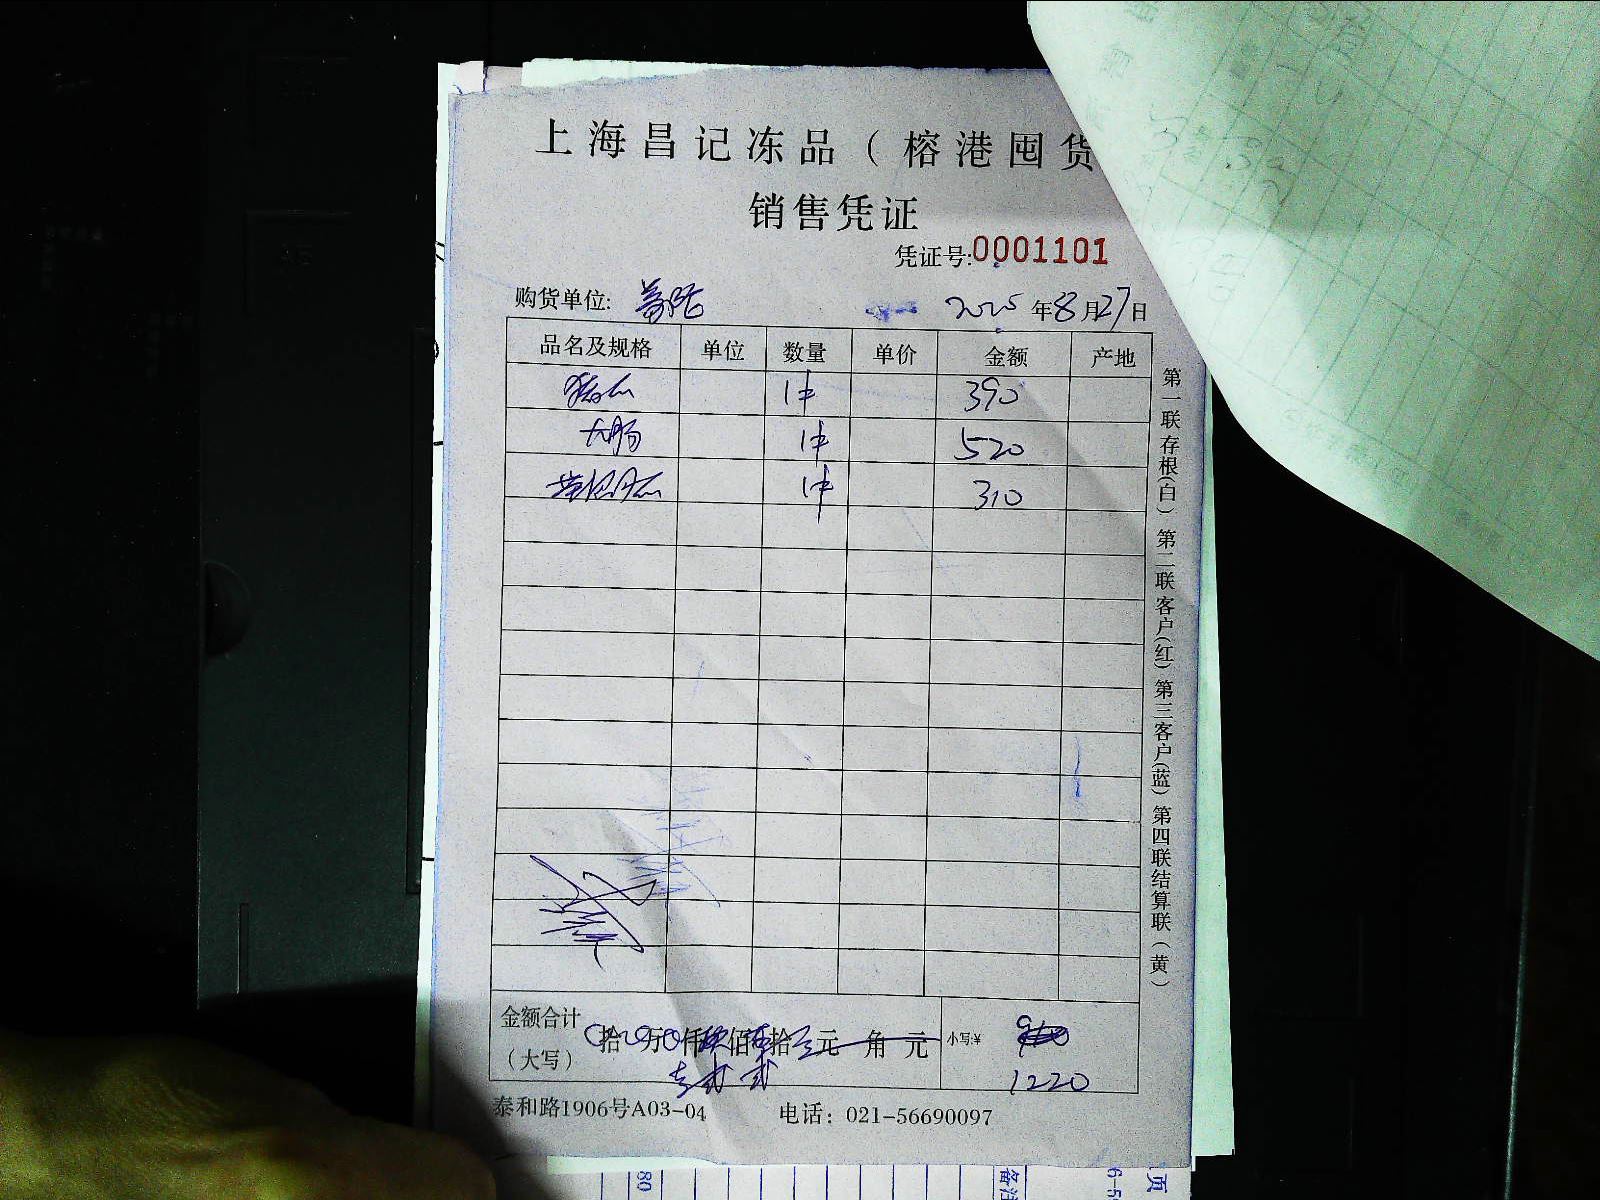 上海昌记冻品（榕港囤货
销售凭证
凭证号:0001101
购货单位: 2025年8月27日
品名及规格 单位 数量 单价 金额 产地
1件 390
大肠 1件 520
1件 310
第一联存根(白) 第二联客户(红) 第三客户(蓝) 第四联结算联(黄)
金额合计 拾 万 仟 佰 拾 元 角 元 小写:¥
（大写） 1220
泰和路1906号A03-04 电话：021-56690097